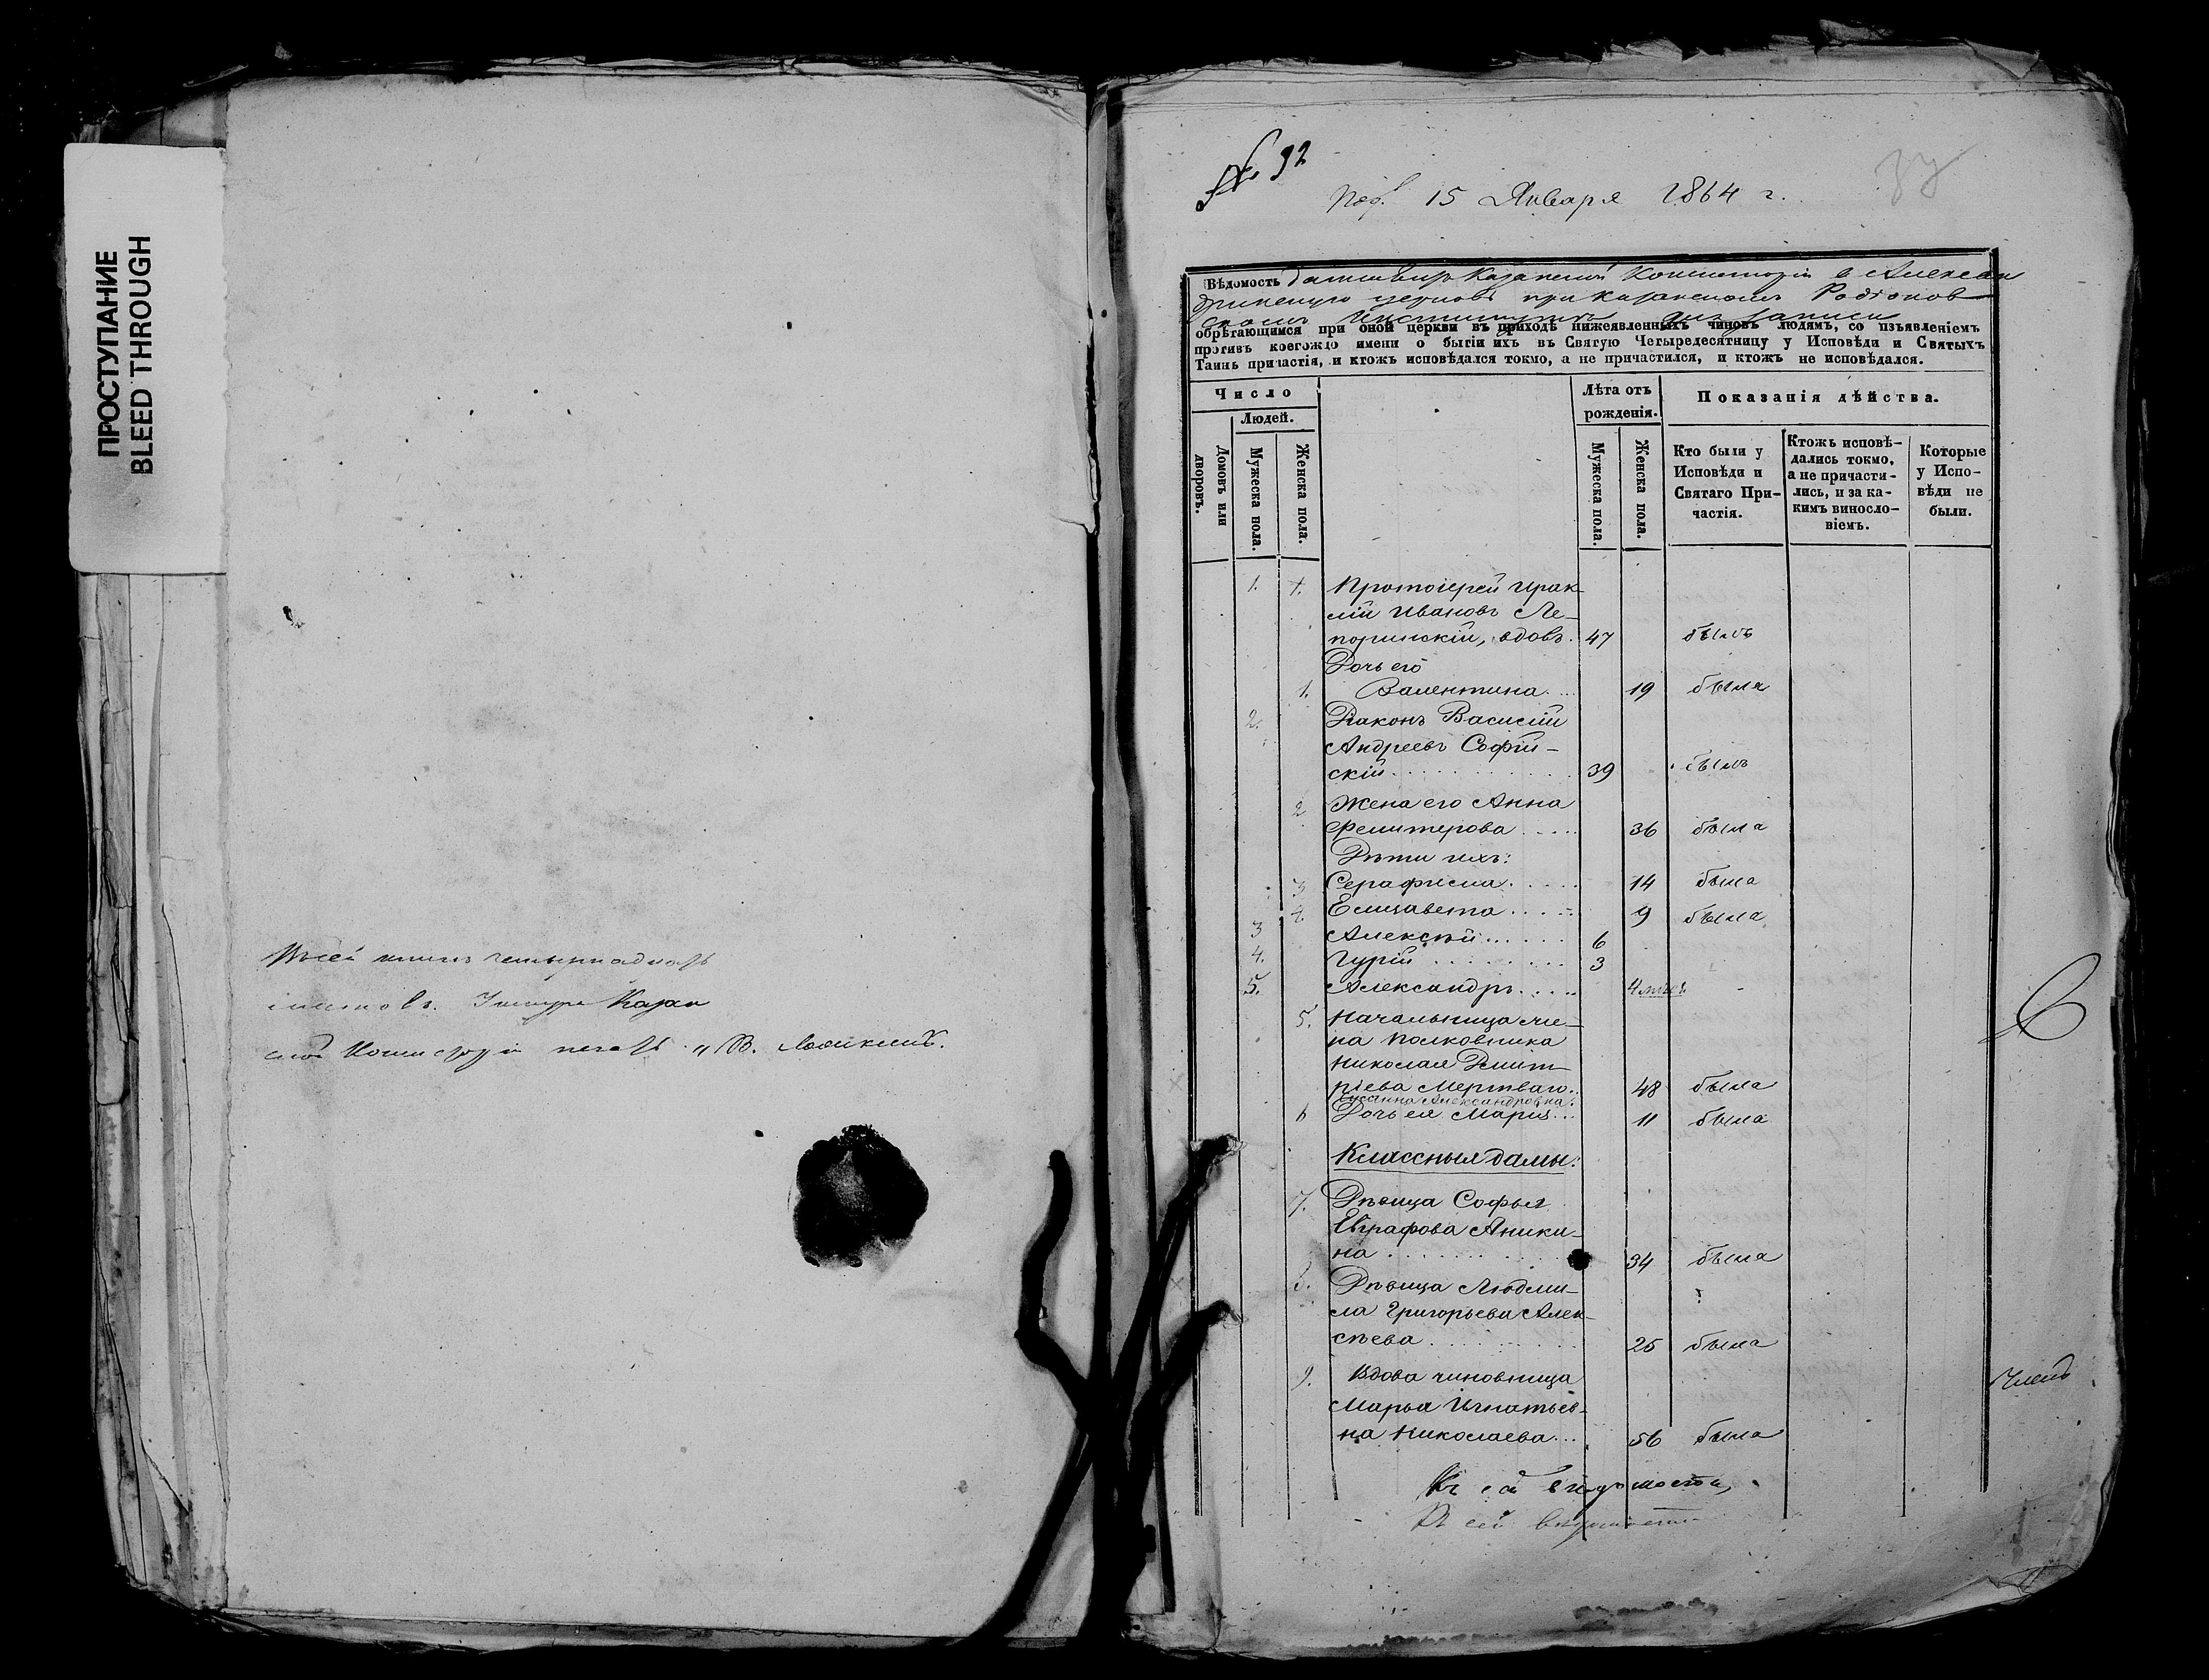 ПРОСТУПАНИЕ
BLEED THROUGH
Въ сей книгѣ четырнадцать
листовъ.
Консисторіи печать
№ 92
Под. 15 Января 1864 г.
Вѣдомость Казанской Консисторіи въ Алексан
дринскую церковь при Казанскомъ Родіонов
скомъ Институтѣ для записи
обрѣтающимся при оной церкви въ приходѣ нижеявленныхъ чиновъ людямъ, со изъявленіемъ
противъ коегождо имени о бытіи ихъ въ Святую Четыредесятницу у Исповѣди и Святыхъ
Таинъ причастія, и ктожъ исповѣдался токмо, а не причастился, и ктожъ не исповѣдался.
Число
Людей.
Домовъ или дворовъ.
Мужеска пола.
Женска пола.
Лѣта отъ рожденія.
Мужеска пола.
Женска пола.
Показанія дѣйства.
Кто были у Исповѣди и Святаго Причастія.
Ктожъ исповѣдались токмо, а не причастились, и за какимъ винословіемъ.
Которые у Исповѣди не были.
1. Протоіерей Ирак-
лій Ивановъ Ле-
поринскій, вдовъ. 47 былъ
Дочь его
1. Валентина.... 19 была
2. Діаконъ Василій
Андреевъ Софій-
скій........... 39 былъ
2 Жена его Анна
..... 36 была
Дѣти ихъ:
3 Серафима..... 14 была
4. Елизавета..... 9 была
3 Алексѣй...... 6
4. Гурій........ 3
5. Александръ..... 4 мѣсяц.
5. Начальница же-
на Полковника
Николая Дмит-
ріева Мертваго.. 48 была
Сусанна Александровна.
6 Дочь ея Марія... 11 была
Классныя дамы:
7. Дѣвица Софья
Евграфова Аники-
на........... 34 была
8. Дѣвица Людми-
ла Григорьева Алек-
сѣева.......... 25 была
9. Вдова чиновница
Марья Игнатьев-
на Николаева... 56 была
Къ сей вѣдомости,
Къ сей вѣдомости
Членъ